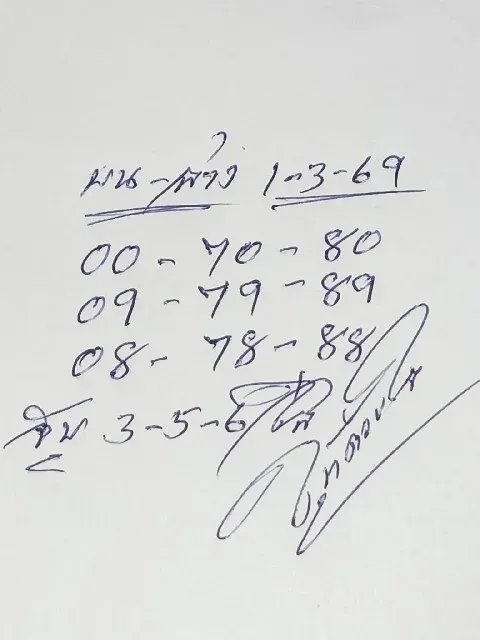 บน-ล่าง 1-3-69
00-70-80
09-79-89
08-78-88
3-5-6